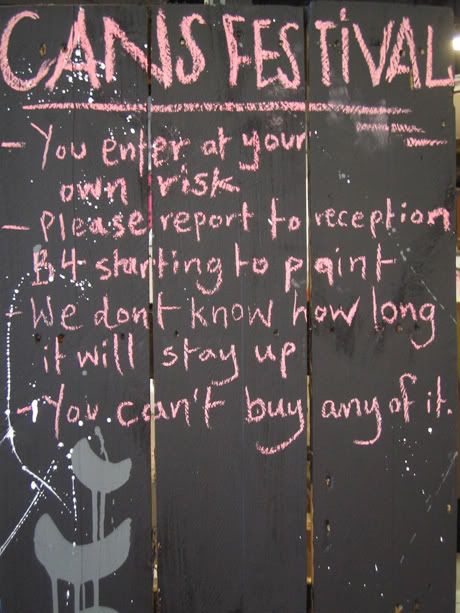 CANS FESTIVAL
- You enter at your
own risk
- Please report to reception
B4 starting to paint
- We dont know how long
it will stay up
- You can't buy any of it.